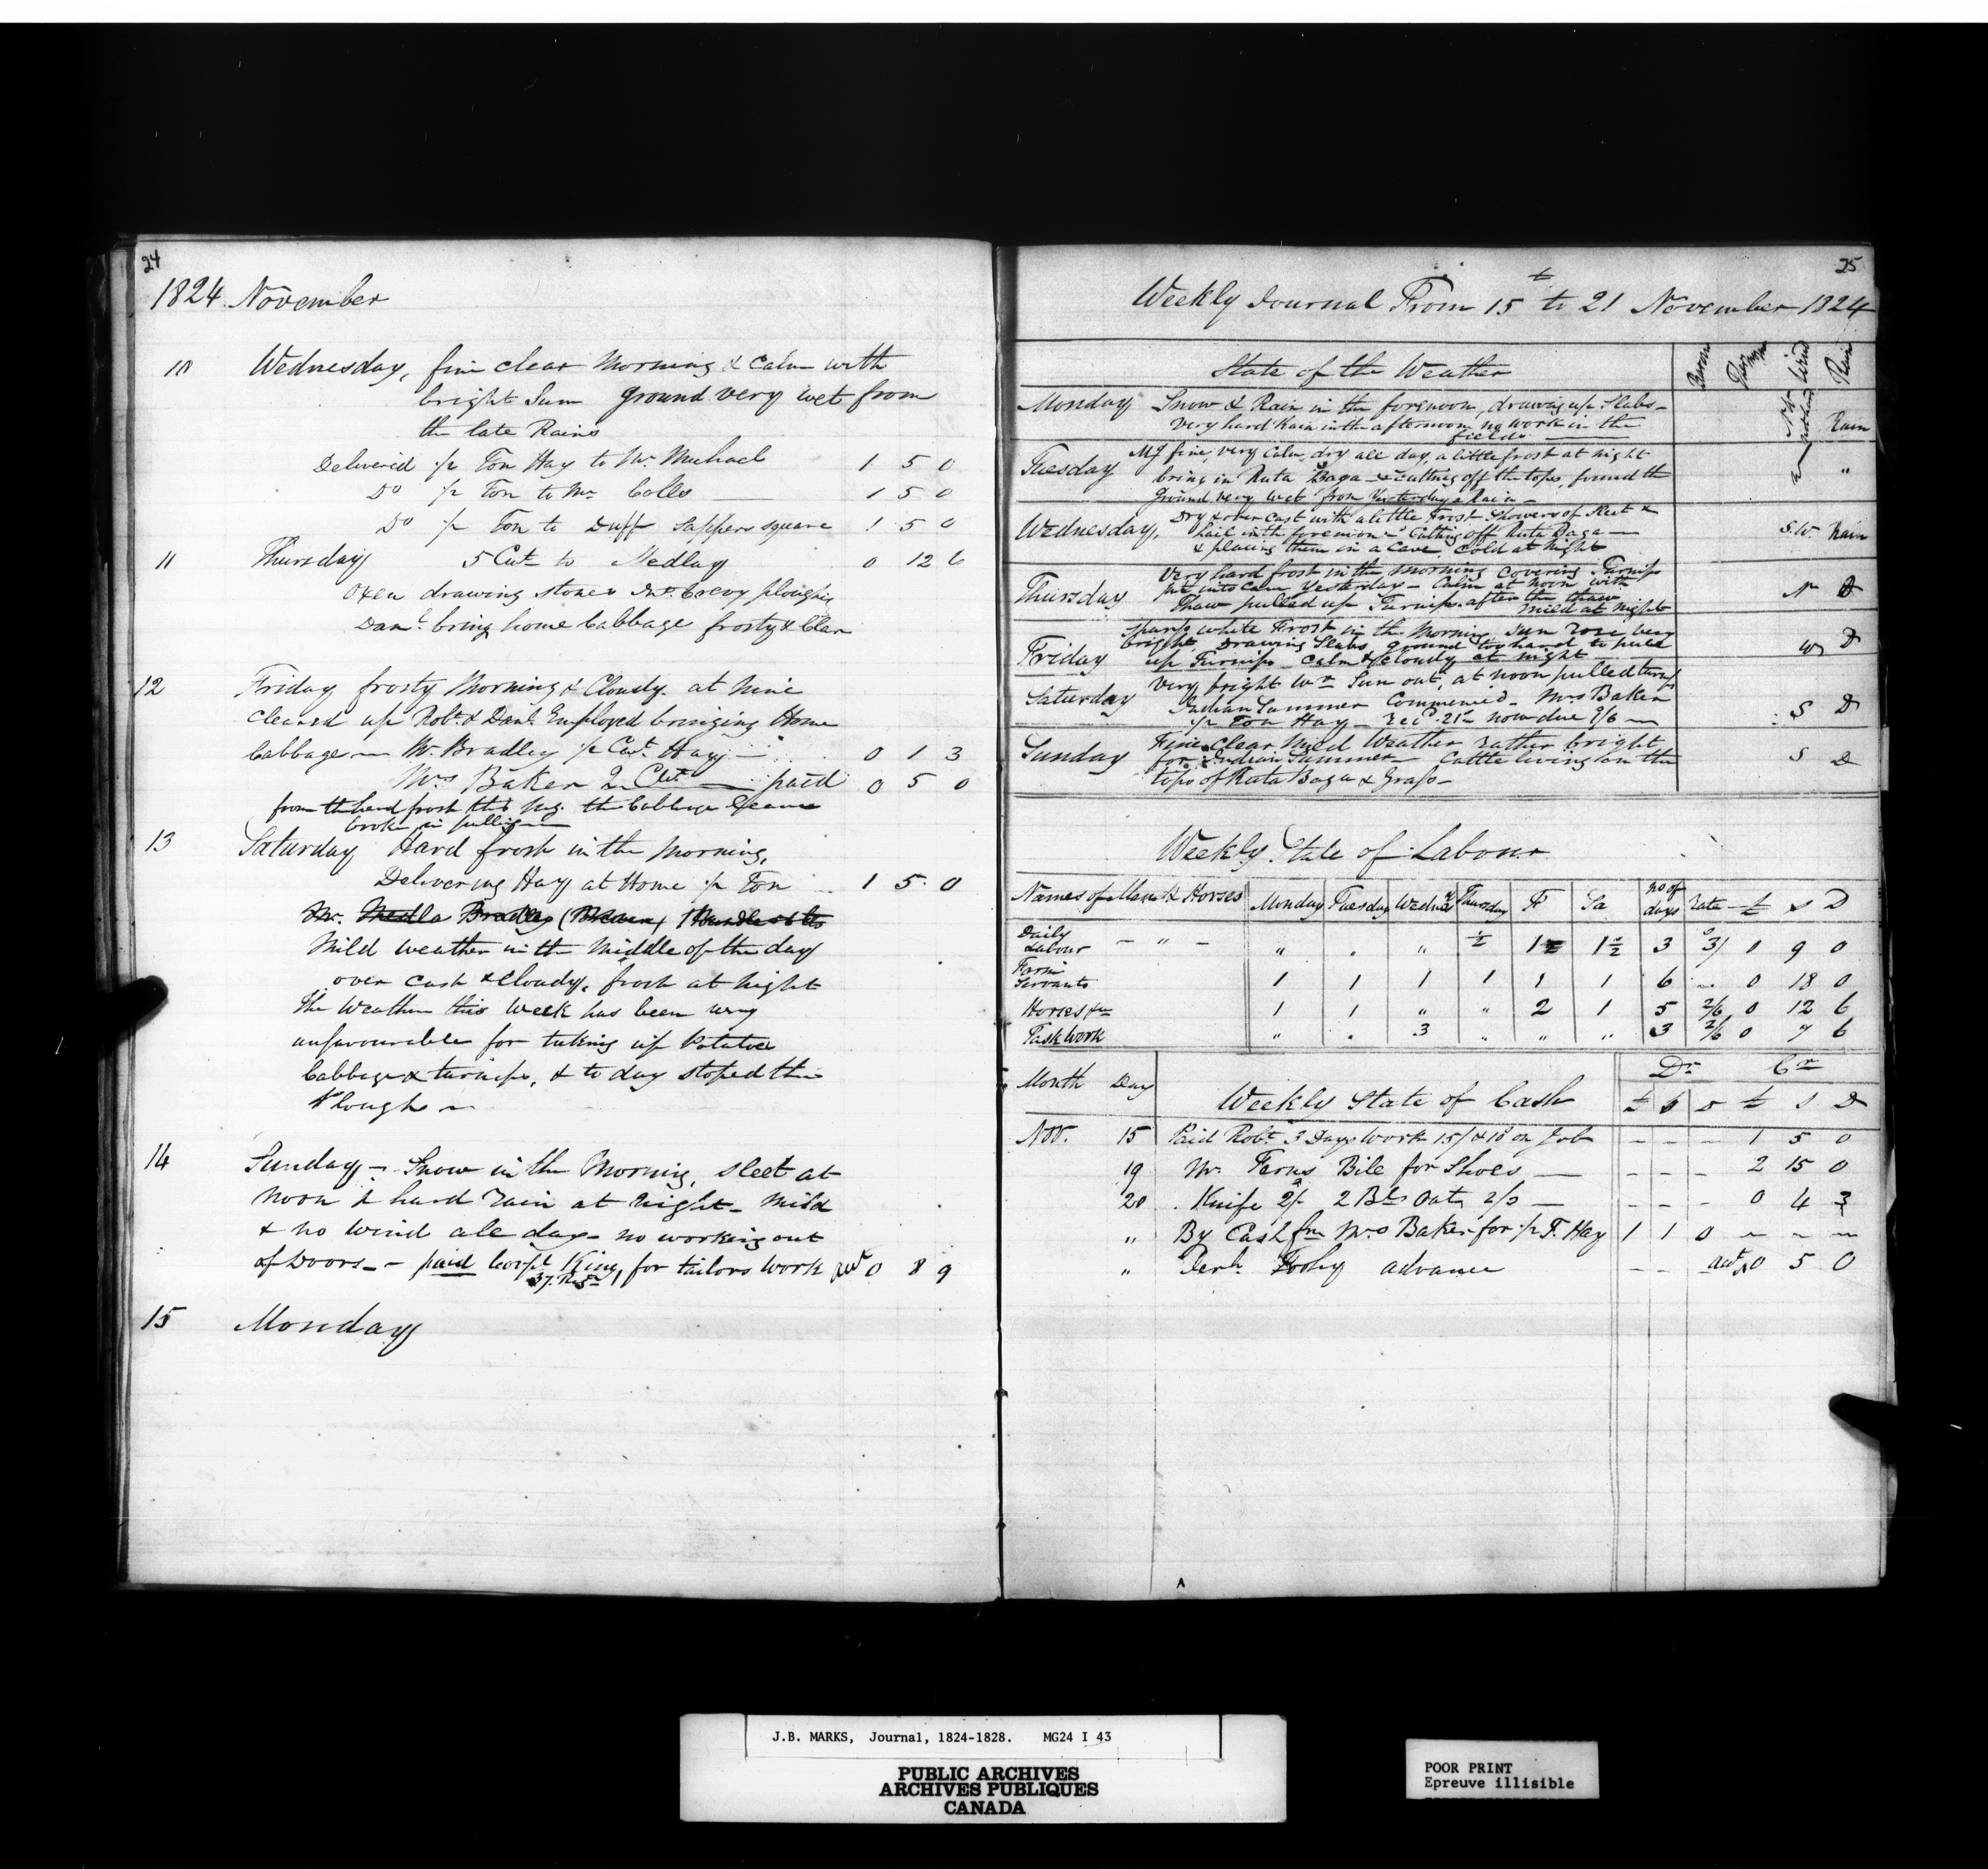 24
1824 November
10 Wednesday, fine clear Morning & Calm with
bright Sun ground very wet from
the late Rains
Delivered ½ Ton Hay to Mr. Michael 1 5 0
Do ½ Ton to Mr Colls 1 5 0
Do ½ Ton to Duff Sappers square 1 5 0
11 Thursday 5 Cwt to Medley 0 12 6
Oxen drawing stones Jno. Crevy ploughig
Danl. bring home Cabbage frosty & Clear
12 Friday frosty Morning & Cloudy. at nine
cleared up Robt. & Danl. Employed bringing Home
Cabbage — Mr. Bradley ½ Cwt. Hay — 0 1 3
Mrs Baker 2 Cwt — paid 0 5 0
from the hard frost this Mg. the Cabbage
broke in pulling —
13 Saturday Hard frost in the Morning,
Delivering Hay at Home ½ Ton 1 5 0
Mr. Bradley
Mild weather in the Middle of the day
over cast & Cloudy, frost at night
The Weather this Week has been very
unfavourable for taking up Potatoe
Cabbage & turnips, & to day stoped the
Plough —
14 Sunday — Snow in the Morning, sleet at
noon & hard rain at night — mild
& no wind all day — no working out
of Doors — paid Corpl King, for tailors work 0 8 9
37. Regt
15 Monday
25
Weekly Journal From 15 to 21 November 1824
State of the Weather Wind Rain
Monday Snow & Rain in the forenoon, drawing up Slabs —
very hard Rain in the afternoon no work in the
fields — Rain
Tuesday Mg fine, very Calm, dry all day, a little frost at night
bring in Ruta Baga — & cutting off the tops, found the
Ground very wet from Yesterdays Rain — "
Wednesday, Dry & over cast with a little Frost Showers of Sleet &
hail in the forenoon — Cutting off Ruta Baga —
& placing them in a Cave, Cold at Night S.W. Rain
Thursday Very hard frost in the morning covering Turnips
put into Cave Yesterday — Calm at noon with
Thaw pulled up Turnips after the thaw
mild at night N D
Friday sparg white Frost in the Morning, Sun rose very
bright, Drawing Slabs ground too hard to pull
up Turnips — Calm & Cloudy at night — W D
Saturday Very bright Wr. Sun out, at noon pulled turnips
Indian Summer Commenced — Mrs Baker
½ Ton Hay — Recd. 21/- now due 9/6 — S D
Sunday Fine & clear Mild Weather rather bright
for Indian Summer — Cattle living on the
tops of Ruta Baga & Grass — S D
Weekly State of Labour
Names of Men & Horses Monday Tuesday Wednesy Thursday F Sa no of days Rate £ S D
Daily Labour — " — " . " ½ 1½ 1½ 3 3/ 1 9 0
Farm Servants 1 1 1 1 1 1 6 — 0 18 0
Horses &c 1 1 " " 2 1 5 2/6 0 12 6
Task Work " . 3 " " " 3 2/6 0 7 6
Month Day Weekly State of Cash Dr Cr
£ S D £ S D
Nov. 15 Paid Robt. 3 Days Work 15/ & 10 on Job — — — 1 5 0
19 Mr. Ferns Bile for Shoes — — — — 2 15 0
20 Knife 2/- 2 Bls Oats 2/3 — — — — 0 4 3
" By Cash fm Mrs Baker for ½ T. Hay 1 1 0 — — —
" Jerh. Foohy advance — — 0 5 0
J.B. MARKS, Journal, 1824-1828. MG24 I 43
PUBLIC ARCHIVES
ARCHIVES PUBLIQUES
CANADA
POOR PRINT
Epreuve illisible